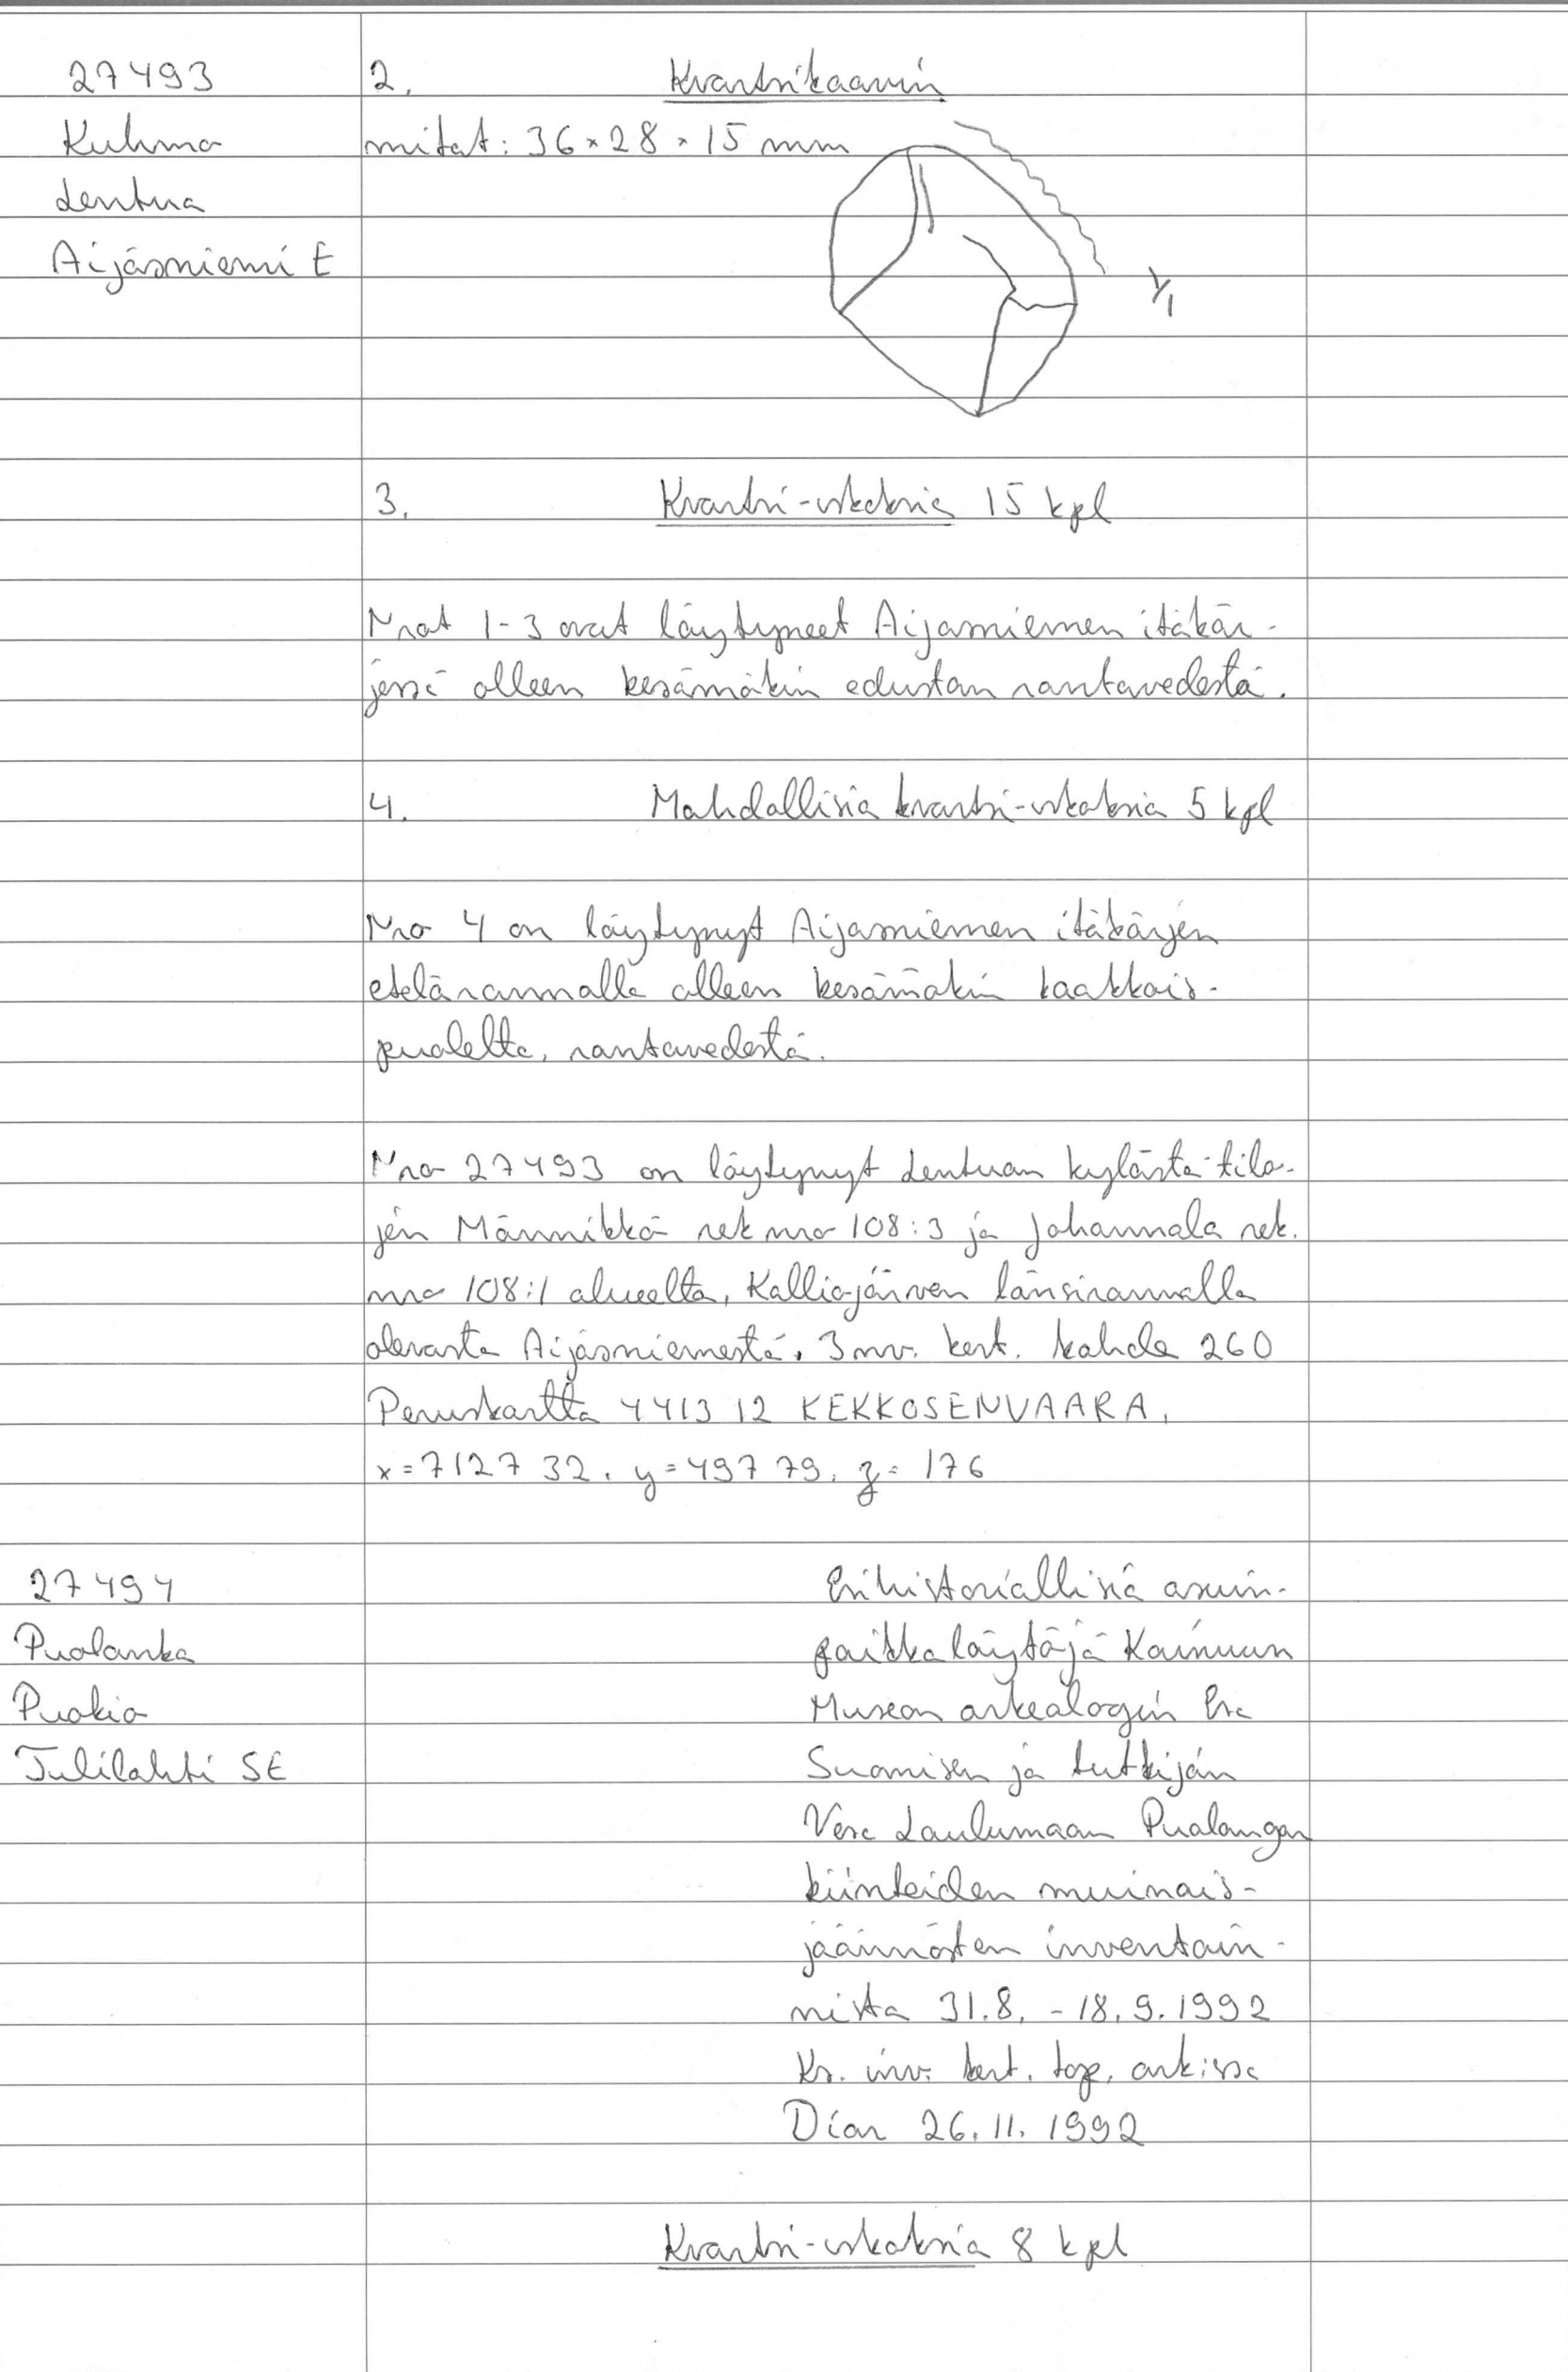 27493
Kuhmo
Lentua
Äijäsniemi E
2. Kvartsikaavin
mitat: 36 x 28 x 15 mm
1/1
3. Kvartsi-iskoksia 15 kpl
Nrot 1-3 ovat löytyneet Äijäsniemen itäkär-
jessä olleen kesämökin edustan rantavedestä.
4. Mahdollisia kvartsi-iskoksia 5 kpl
Nro 4 on löytynyt Äijäsniemen itäkärjen
etelärannalla olleen kesämökin kaakkois-
puolelta, rantavedestä.
Nro 27493 on löytynyt Lentuan kylästä tilo-
jen Männikkö rek nro 108:3 ja Johannala rek.
nro 108:1 alueelta, Kalliojärven länsirannalla
olevasta Äijäsniemestä. Inv. kert. kohde 260
Peruskartta 4413 12 KEKKOSENVAARA,
x=7127 32, y=497 79, z= 176
27494
Puolanka
Puokio
Tulilahti SE
Esihistoriallisia asuin-
paikkalöytöjä Kainuun
Museon arkeologin Esa
Suomisen ja tutkijan
Vesa Laulumaan Puolangan
kiinteiden muinais-
jäännösten inventoin-
nista 31.8. - 18.9.1992
Ks. inv. kert. top. ark:ssa
Diar 26.11.1992
Kvartsi-iskoksia 8 kpl